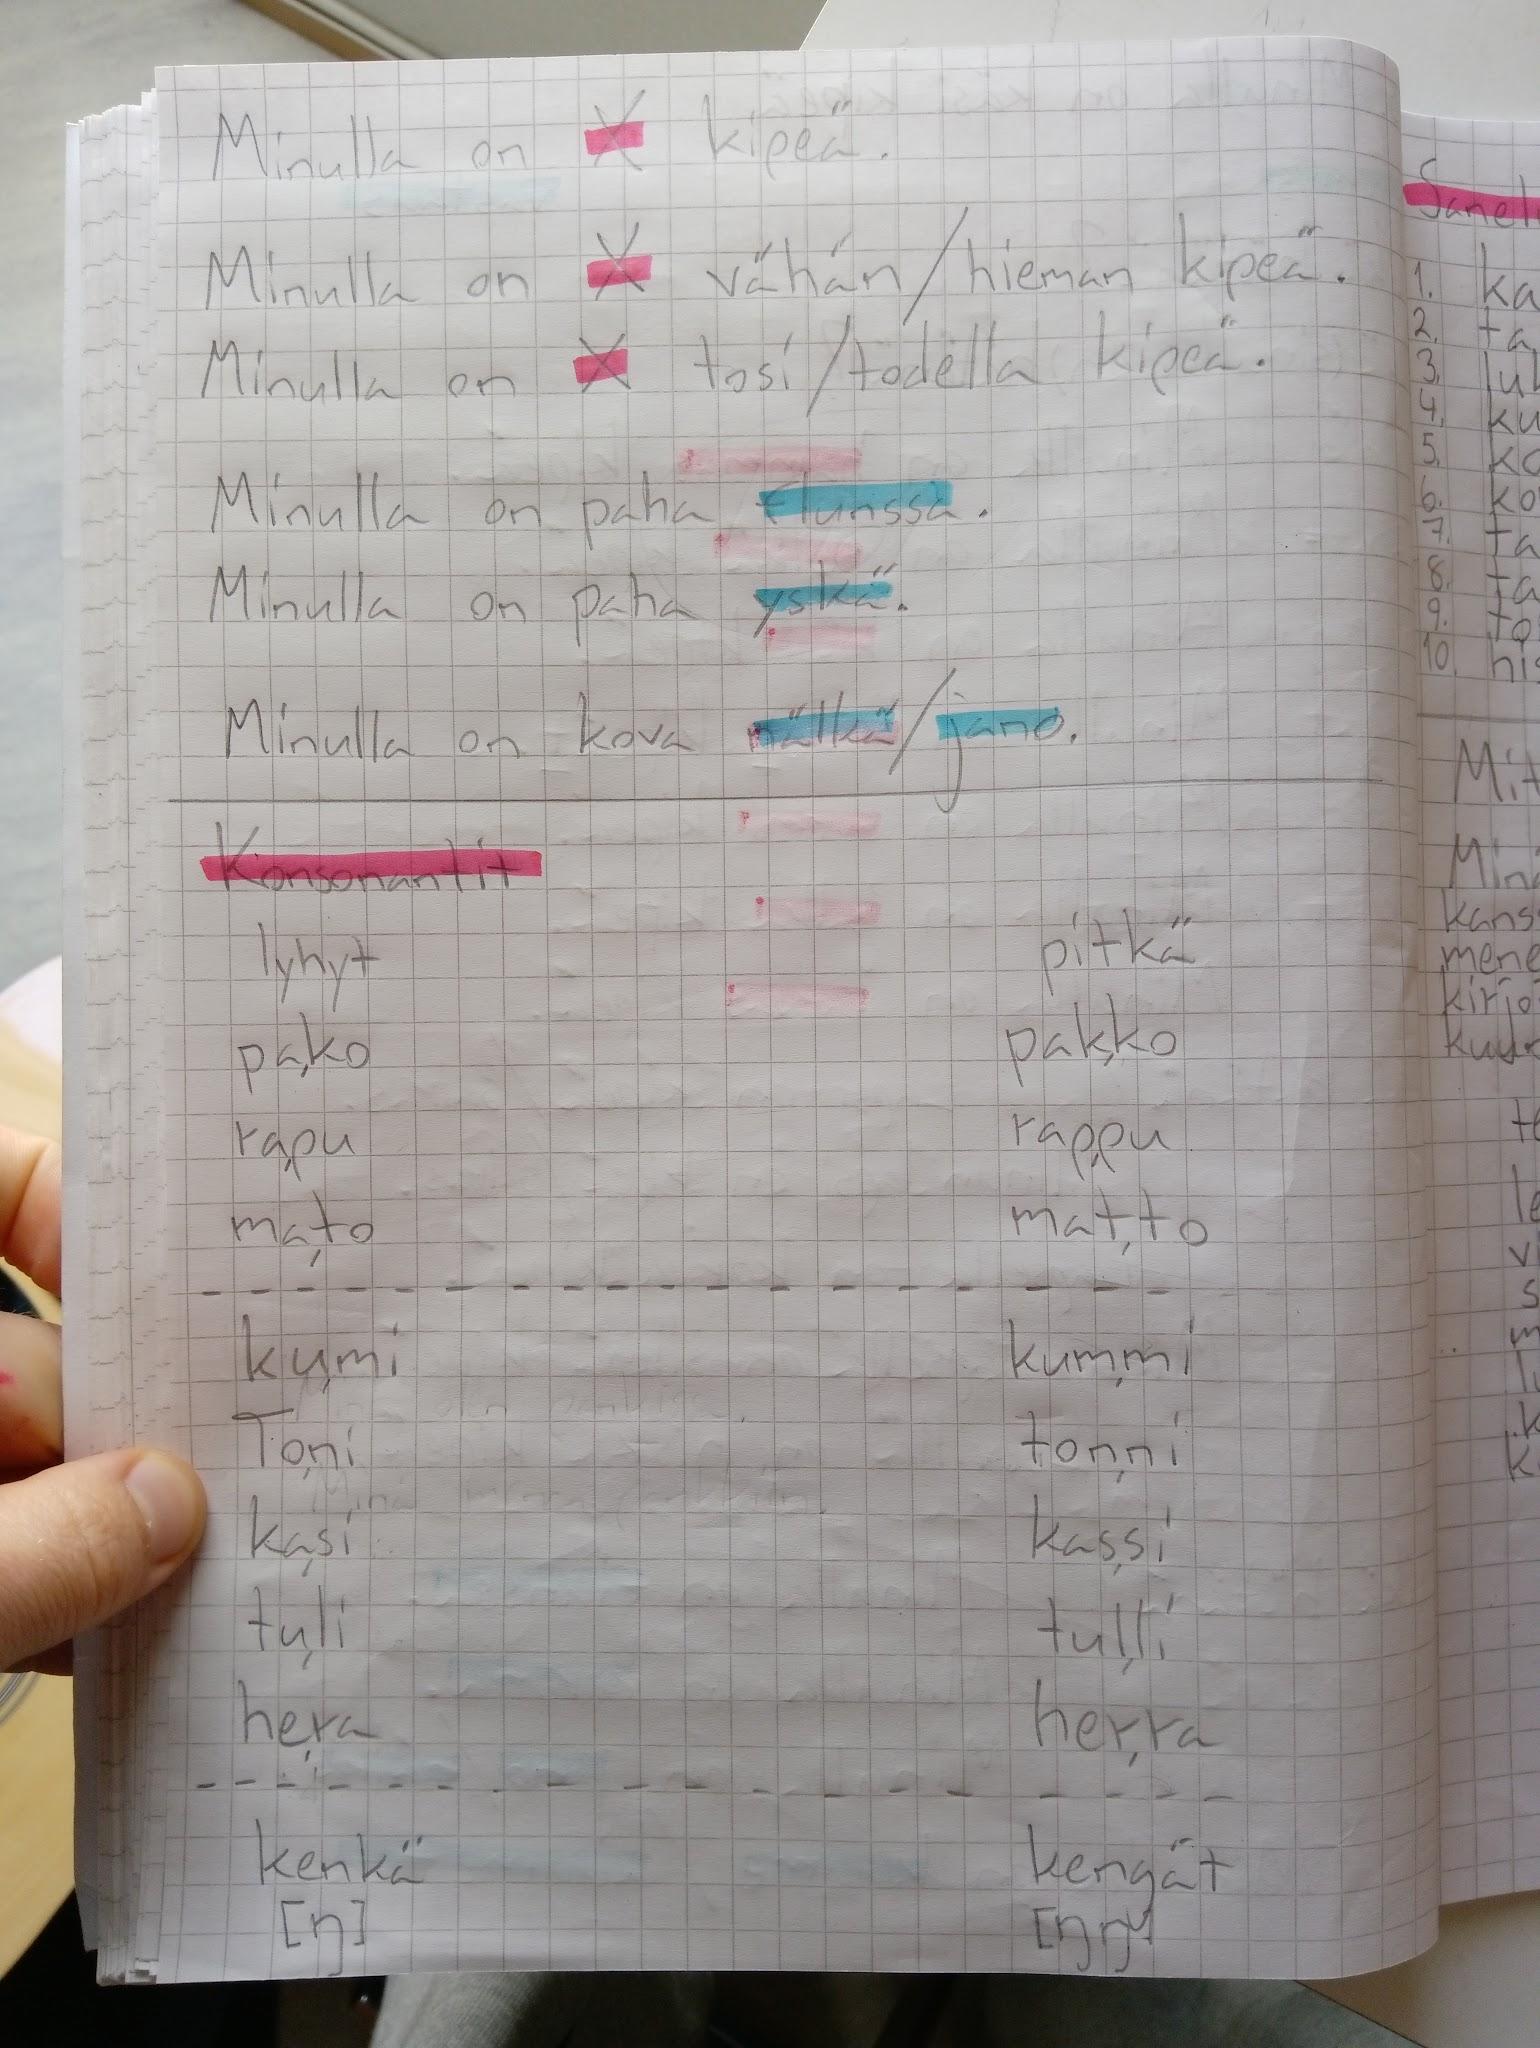 Minulla on X kipeä.
Minulla on X vähän/hieman kipeä.
Minulla on X tosi/todella kipeä.
Minulla on paha flunssa.
Minulla on paha yskä.
Minulla on kova nälkä/jano.
Konsonantit
lyhyt pitkä
pa,ko pak,ko
ra,pu rap,pu
ma,to mat,to
ku,mi kum,mi
To,ni ton,ni
ka,si kas,si
tu,li tul,li
he,ra her,ra
kenkä kengät
[ŋ] [ŋŋ]
1.
2.
3.
4.
5.
6.
7.
8.
9.
10.